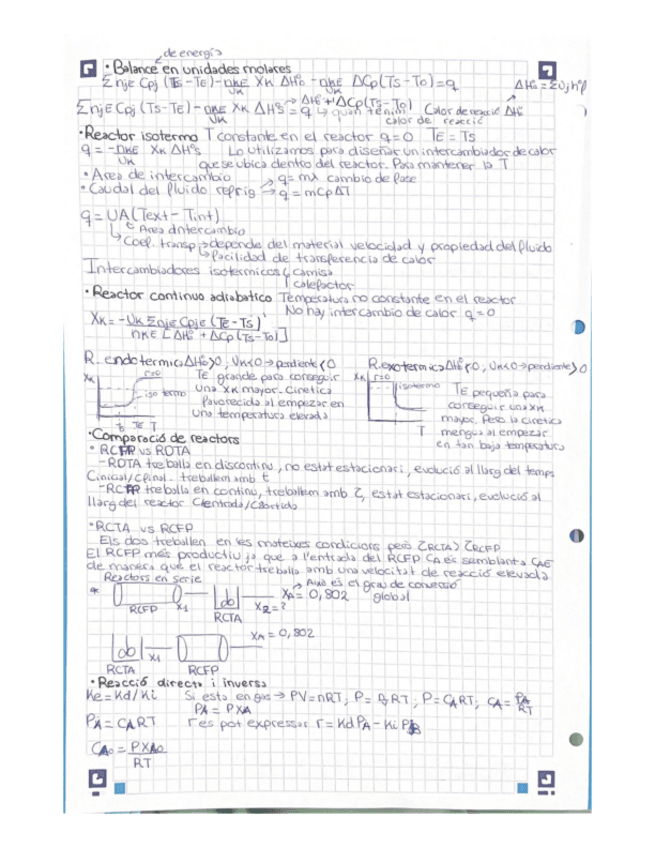 de energía
· Balance en unidades molares
Σ nje Cpj (Ts-Te) - nKE/νK XK ΔHº - nKE/νK ΔCp(Ts-To) = q ΔHº = Σνj hºf
ΣnjE Cpj (Ts-TE) - nKE/νK XK ΔHºs = q → quan tenim Calor de reacció ΔHº
→ ΔHº + ΔCp(Ts-To) calor de reacció
· Reactor isotermo T constante en el reactor q=0 TE=TS
q = -nKE/νK XK ΔHºs Lo utilizamos para diseñar un intercambiador de calor
que se ubica dentro del reactor. Para mantener la T
· Area de intercambio → q=mλ cambio de fase
· Caudal del fluido refrig → q=mCpΔT
q=UA(Text-Tint)
Area d intercambio
Coef. transp → depende del material velocidad y propiedad del fluido
↳ facilidad de transferencia de calor
Intercambiadores isotermicos { camisa
calefactor
· Reactor continuo adiabatico Temperatura no constante en el reactor
No hay intercambio de calor q=0
XK = -νK Σnje Cpje (Te-Ts)
nKE [ΔHº + ΔCp(Ts-To)]
R. endotermica ΔHº>0, νK<0→pendiente<0 R. exotermica ΔHº<0, νK<0→pendiente>0
XK r=0 TE grande para conseguir XK r=0 isotermo TE pequeña para
isotermo una XK mayor. Cinetica conseguir una XK
favorecida al empezar en mayor. Pero la cinetica
una temperatura elevada T mengua al empezar
To TE T en tan baja temperatura
· Comparació de reactors
· RCFP vs RDTA
- RDTA treballa en discontinu, no estat estacionari, evolució al llarg del temps
Cinicial/Cfinal. treballem amb t
- RCFP treballa en continu, treballem amb ζ, estat estacionari, evolució al
llarg del reactor Centrada/Csortida
· RCTA vs RCFP
Els dos treballen en les mateixes condicions però ζRCTA > ζRCFP
El RCFP més productiu ja que a l'entrada del RCFP CA es semblant a CAE
de manera que el reactor treballa amb una velocitat de reacció elevada
Reactors en serie → Això es el grau de conversió
X1 X2=? XA=0,802 global
RCFP RCTA
X1 XA=0,802
RCTA RCFP
· Reacció directa i inversa
Ke=Kd/Ki Si esta en gas → PV=nRT; P= RT; P=CART; CA=PA/RT
PA = PXA
PA=CART r es pot expressar r=KdPA-KiPB
CA0=PXA0
RT